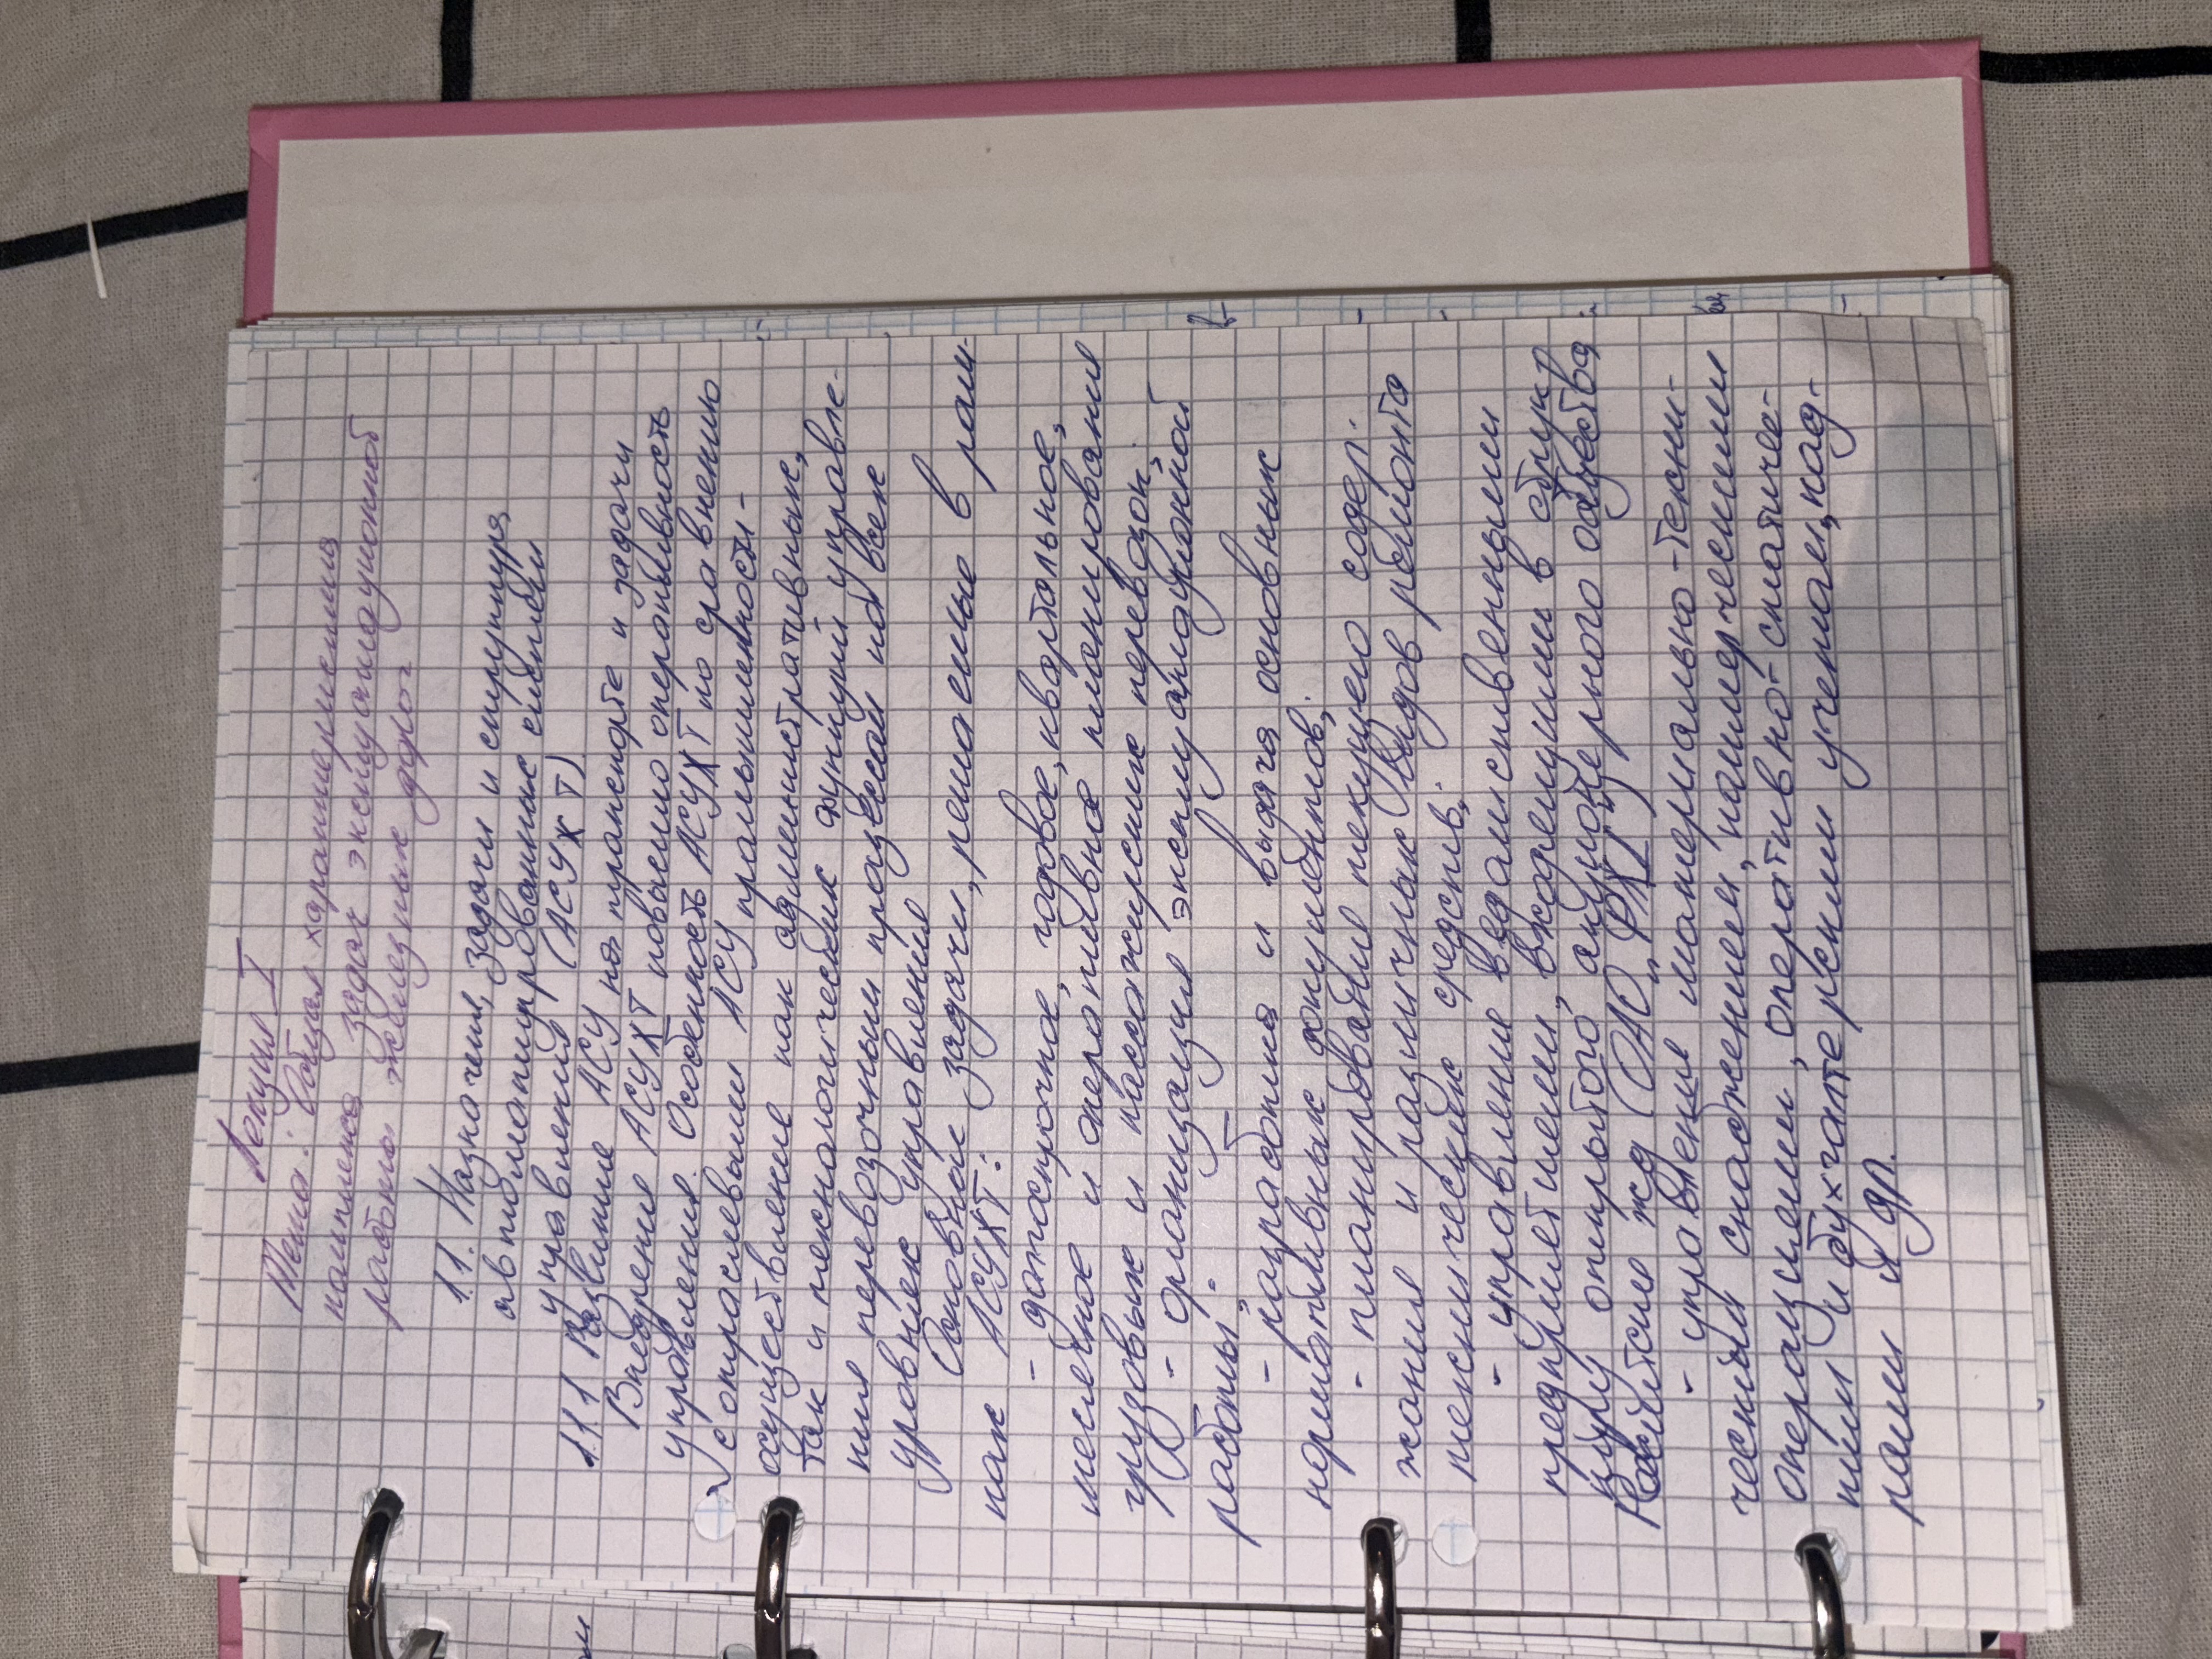 Лекция I
Тема: Общая характеристика
комплекса задач эксплуатационной
работы железных дорог
1.1. Назначения, задачи и структура
автоматизированных системы
управления (АСУЖТ)
1.1.1 Развитие АСУ на транспорте и задачи
Внедрение АСУЖТ повысило оперативность
управления. Особенность АСУЖТ по сравнению
с отраслевыми АСУ промышленности -
осуществление как административных,
так и технологических функций управле-
ния перевозочным процессом на всех
уровнях управления
Основные задачи, решаемые в рам-
ках АСУЖТ:
- долгосрочное, годовое, квартальное,
месячное и оперативное планирование
грузовых и пассажирских перевозок;
- организация эксплуатационной
работы;
- разработка и выдача основных
нормативных документов;
- планирование текущего содер-
жания и различных видов ремонта
технических средств;
- управление ведомственными
предприятиями, входящими в струк
туру открытого акционерного общества
Российские жд (ОАО "РЖД")
- управление материально-техни-
ческим снабжением, коммерческими
операциями, оперативно-статичес-
ким и бухгалтерским учетом, кад-
рами и др.